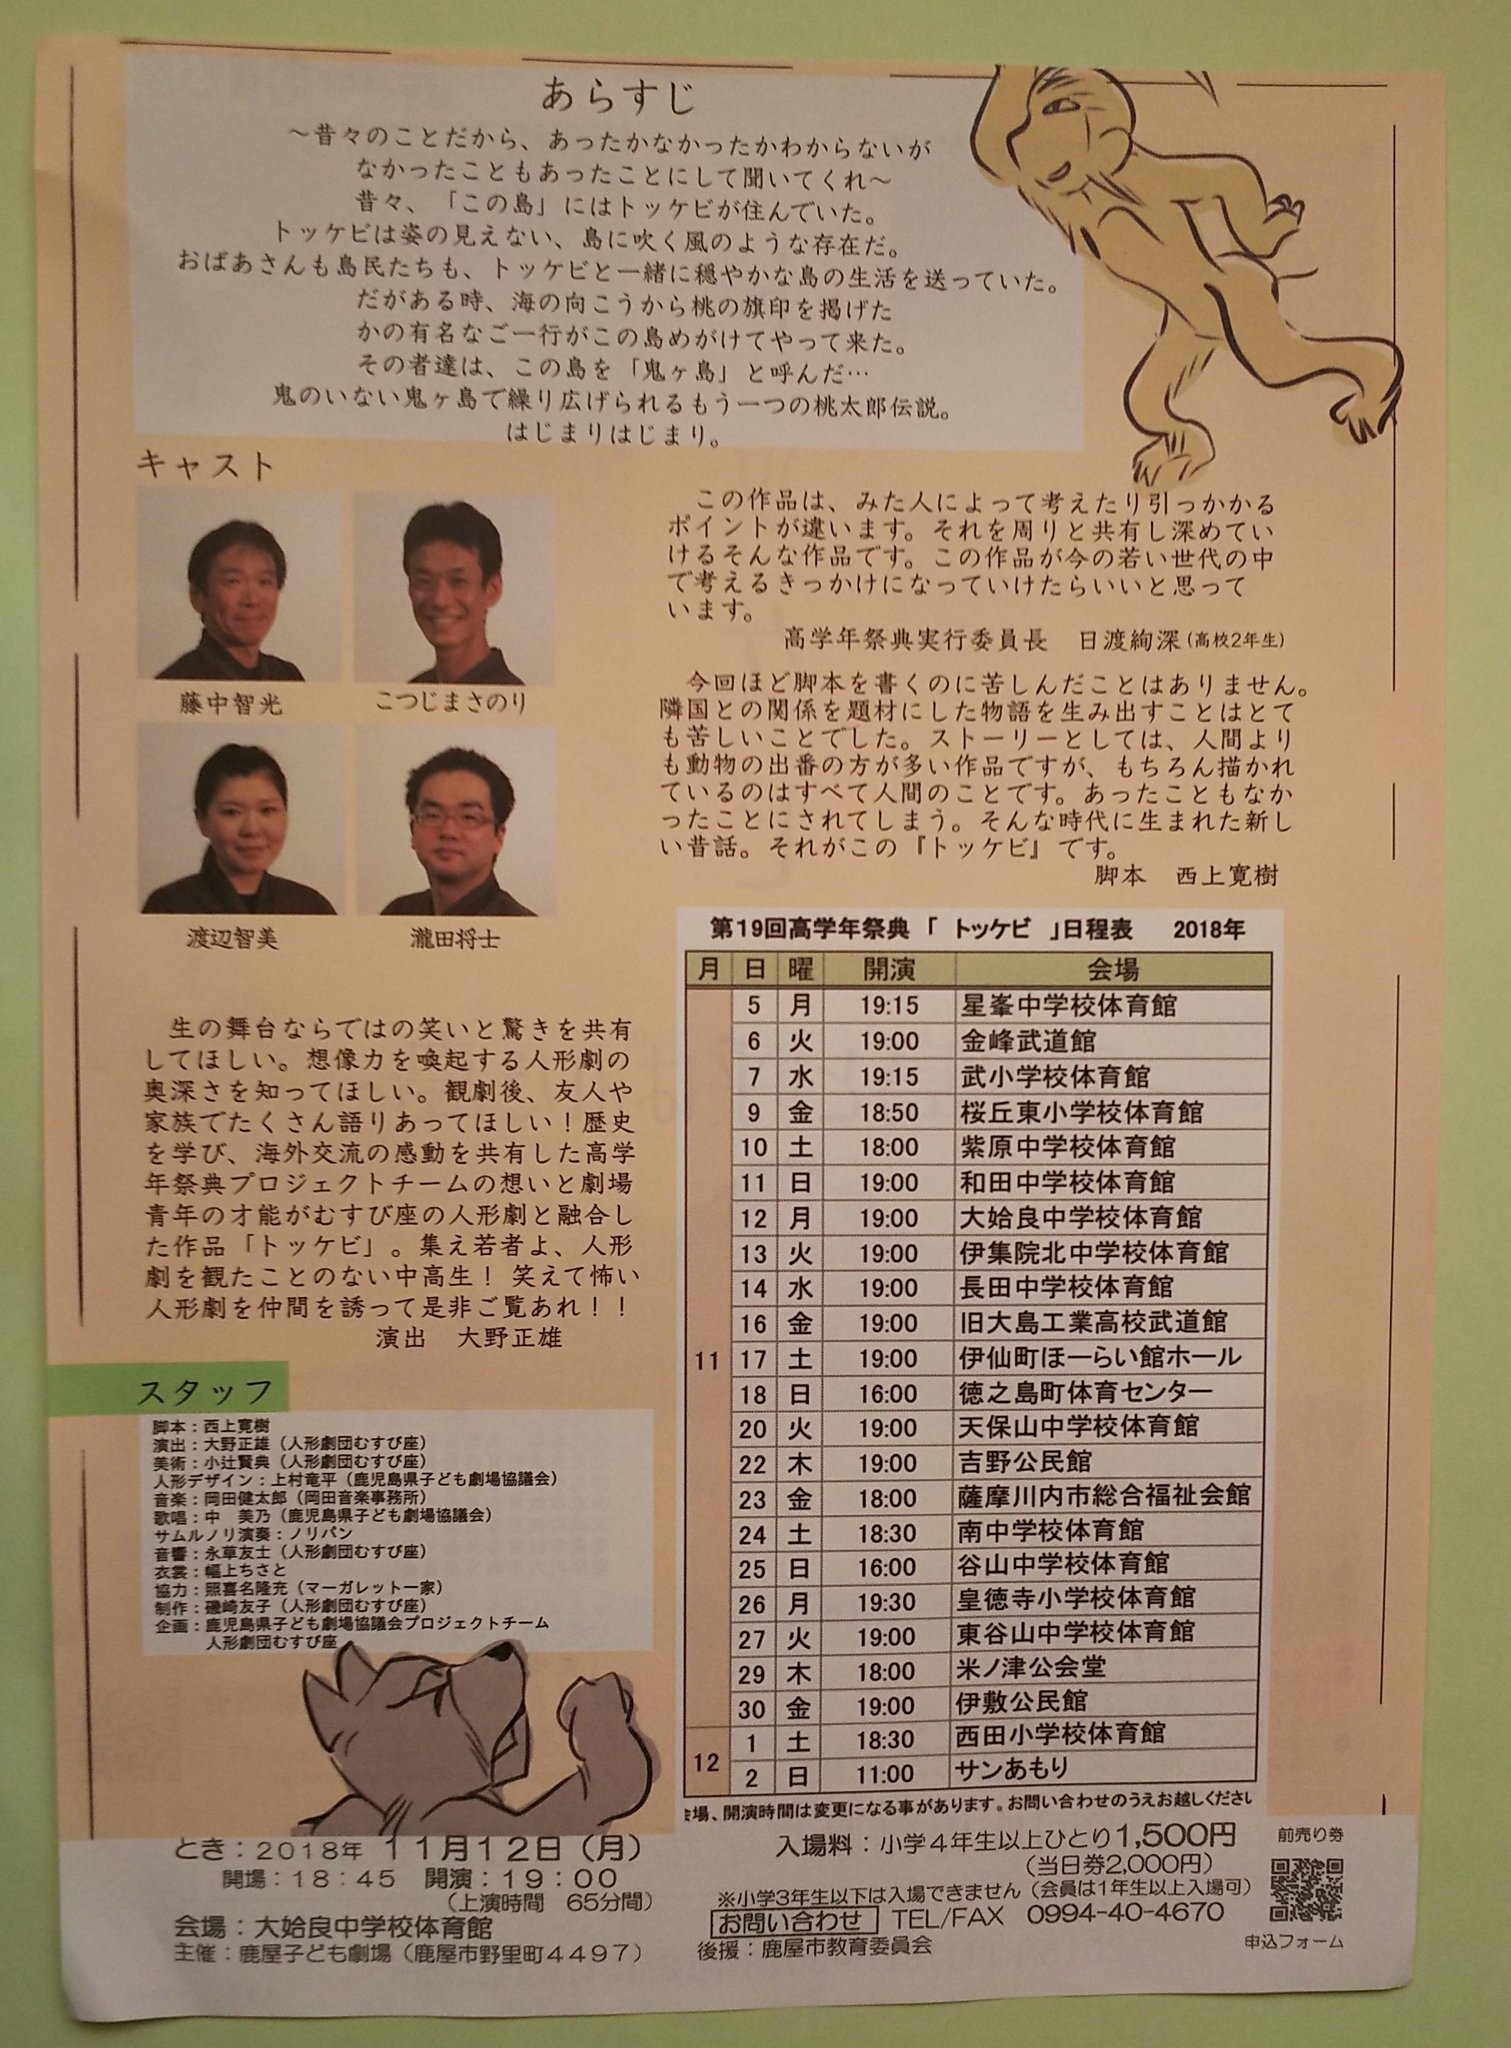 あらすじ
～昔々のことだから、あったかなかったかわからないが
なかったこともあったことにして聞いてくれ～
昔々、「この島」にはトッケビが住んでいた。
トッケビは姿の見えない、島に吹く風のような存在だ。
おばあさんも島民たちも、トッケビと一緒に穏やかな島の生活を送っていた。
だがある時、海の向こうから桃の旗印を掲げた
かの有名なご一行がこの島めがけてやって来た。
その者達は、この島を「鬼ヶ島」と呼んだ…
鬼のいない鬼ヶ島で繰り広げられるもう一つの桃太郎伝説。
はじまりはじまり。
キャスト
藤中智光
こつじまさのり
渡辺智美
瀧田将士
この作品は、みた人によって考えたり引っかかる
ポイントが違います。それを周りと共有し深めてい
けるそんな作品です。この作品が今の若い世代の中
で考えるきっかけになっていけたらいいと思って
います。
高学年祭典実行委員長　日渡絢深(高校2年生)
今回ほど脚本を書くのに苦しんだことはありません。
隣国との関係を題材にした物語を生み出すことはとて
も苦しいことでした。ストーリーとしては、人間より
も動物の出番の方が多い作品ですが、もちろん描かれ
ているのはすべて人間のことです。あったこともなか
ったことにされてしまう。そんな時代に生まれた新し
い昔話。それがこの『トッケビ』です。
脚本　西上寛樹
生の舞台ならではの笑いと驚きを共有
してほしい。想像力を喚起する人形劇の
奥深さを知ってほしい。観劇後、友人や
家族でたくさん語りあってほしい！歴史
を学び、海外交流の感動を共有した高学
年祭典プロジェクトチームの想いと劇場
青年の才能がむすび座の人形劇と融合し
た作品「トッケビ」。集え若者よ、人形
劇を観たことのない中高生！ 笑えて怖い
人形劇を仲間を誘って是非ご覧あれ！！
演出　大野正雄
スタッフ
脚本：西上寛樹
演出：大野正雄（人形劇団むすび座）
美術：小辻賢典（人形劇団むすび座）
人形デザイン：上村竜平（鹿児島県子ども劇場協議会）
音楽：岡田健太郎（岡田音楽事務所）
歌唱：中　美乃（鹿児島県子ども劇場協議会）
サムルノリ演奏：ノリパン
音響：永草友士（人形劇団むすび座）
衣裳：幅上ちさと
協力：照喜名隆充（マーガレット一家）
制作：磯崎友子（人形劇団むすび座）
企画：鹿児島県子ども劇場協議会プロジェクトチーム
人形劇団むすび座
第19回高学年祭典「 トッケビ 」日程表　2018年
月 日 曜 開演 会場
11
5 月 19:15 星峯中学校体育館
6 火 19:00 金峰武道館
7 水 19:15 武小学校体育館
9 金 18:50 桜丘東小学校体育館
10 土 18:00 紫原中学校体育館
11 日 19:00 和田中学校体育館
12 月 19:00 大姶良中学校体育館
13 火 19:00 伊集院北中学校体育館
14 水 19:00 長田中学校体育館
16 金 19:00 旧大島工業高校武道館
17 土 19:00 伊仙町ほーらい館ホール
18 日 16:00 徳之島町体育センター
20 火 19:00 天保山中学校体育館
22 木 19:00 吉野公民館
23 金 18:00 薩摩川内市総合福祉会館
24 土 18:30 南中学校体育館
25 日 16:00 谷山中学校体育館
26 月 19:30 皇徳寺小学校体育館
27 火 19:00 東谷山中学校体育館
29 木 18:00 米ノ津公会堂
30 金 19:00 伊敷公民館
12
1 土 18:30 西田小学校体育館
2 日 11:00 サンあもり
場、開演時間は変更になる事があります。お問い合わせのうえお越しくださ
とき：2018年 11月12日（月）
開場：18：45　開演：19：00
（上演時間　65分間）
会場：大姶良中学校体育館
主催：鹿屋子ども劇場（鹿屋市野里町4497）
入場料：小学4年生以上ひとり1,500円
（当日券2,000円）
※小学3年生以下は入場できません（会員は1年生以上入場可）
お問い合わせ TEL/FAX 0994-40-4670
後援：鹿屋市教育委員会
前売り券
申込フォーム